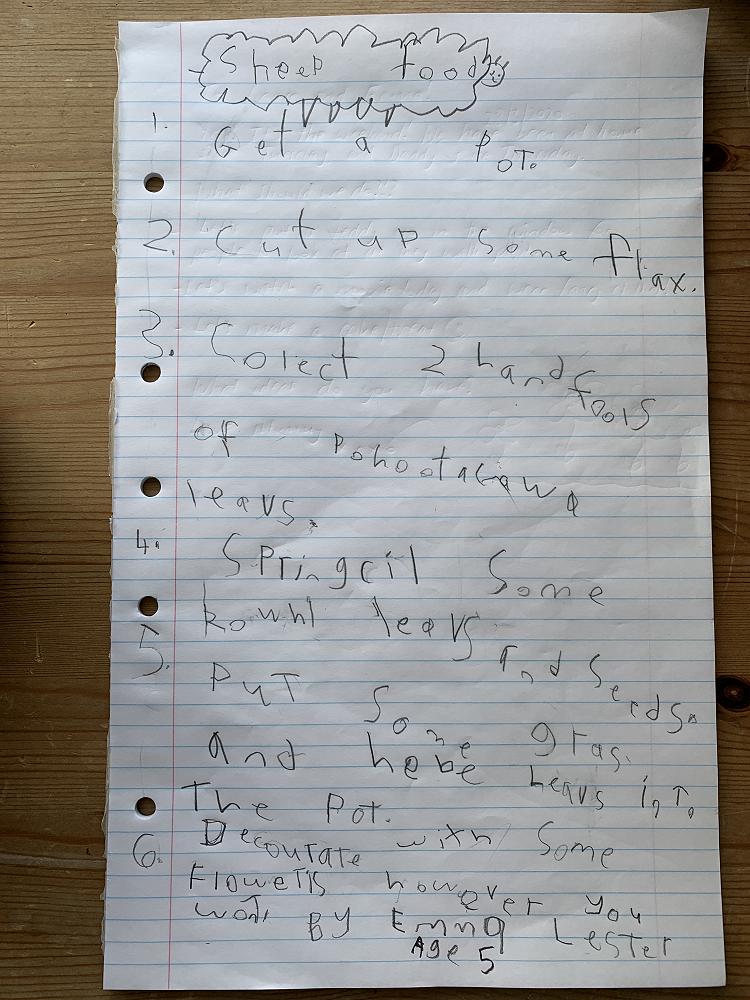 Sheep food
1. Get a Pot.
2. Cut up some flax.
3. Colect 2 handfools
of pohootacawa
leavs.
4. Springcil Some
kowhI leavs and Seeds.
5. Put Some gras.
and hebe leavs in T.
The Pot.
6. Decourate with Some
Flowers however you
wot. By Emma Lester
Age 5